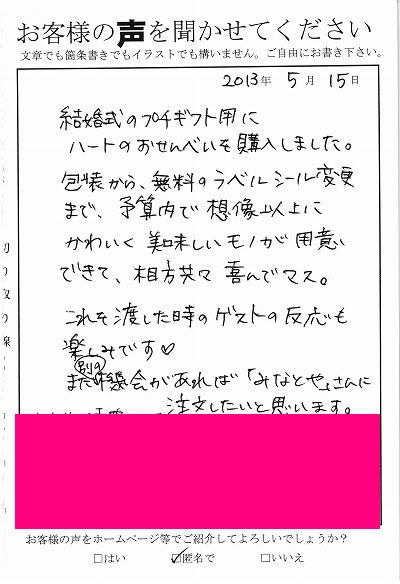 お客様の声を聞かせてください
文章でも箇条書きでもイラストでも構いません。ご自由にお書き下さい。
2013年 5月 15日
結婚式のプチギフト用に
ハートのおせんべいを購入しました。
包装から、無料のラベルシール変更
まで、予算内で想像以上に
かわいく美味しいモノが用意
できて、相方共々喜んでマス。
これを渡した時のゲストの反応も
楽しみです♡
別の
また機会があれば「みなとや」さんに
注文したいと思います。
切り取り線
お客様の声をホームページ等でご紹介してよろしいでしょうか?
□はい ☑匿名で □いいえ